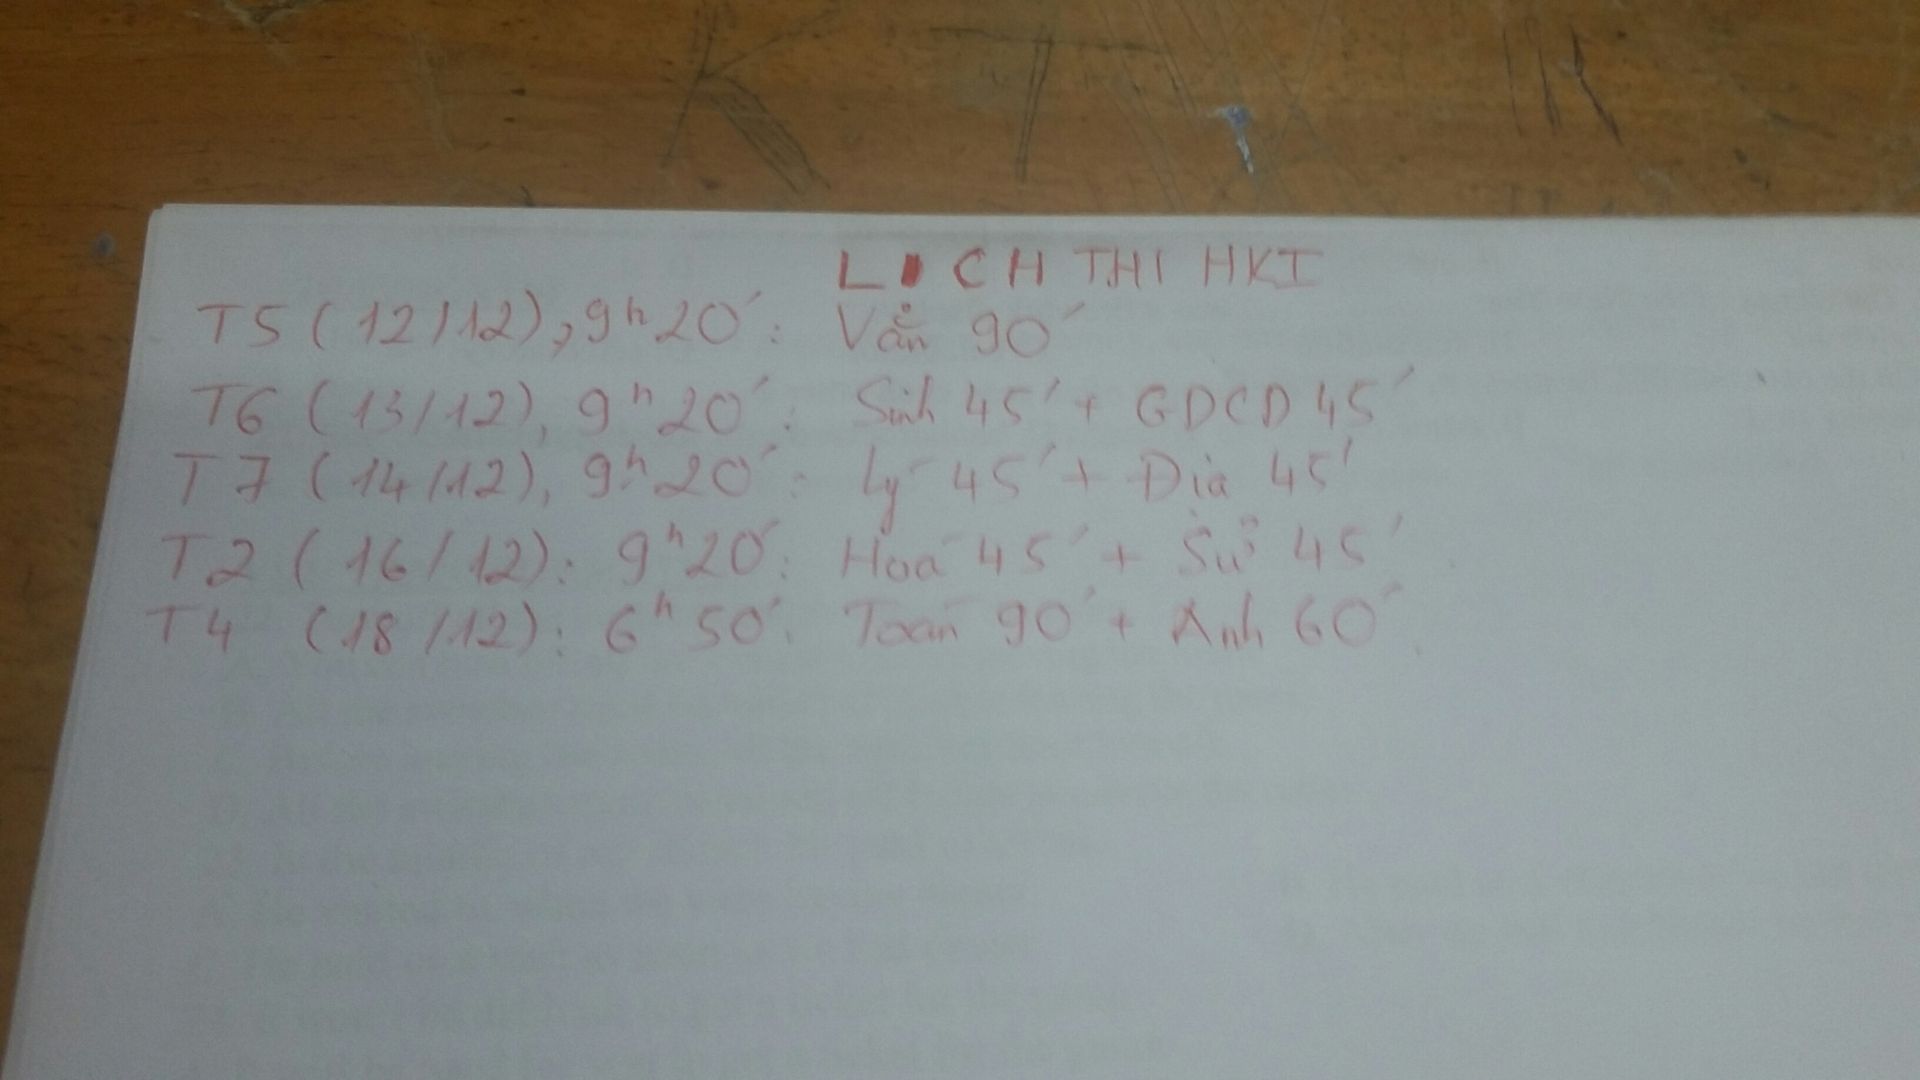 LỊCH THI HKI
T5 (12/12), 9h20': Văn 90'
T6 (13/12), 9h20': Sinh 45' + GDCD 45'
T7 (14/12), 9h20': Lý 45' + Địa 45'
T2 (16/12): 9h20': Hoá 45' + Sử 45'
T4 (18/12): 6h50': Toán 90' + Anh 60'